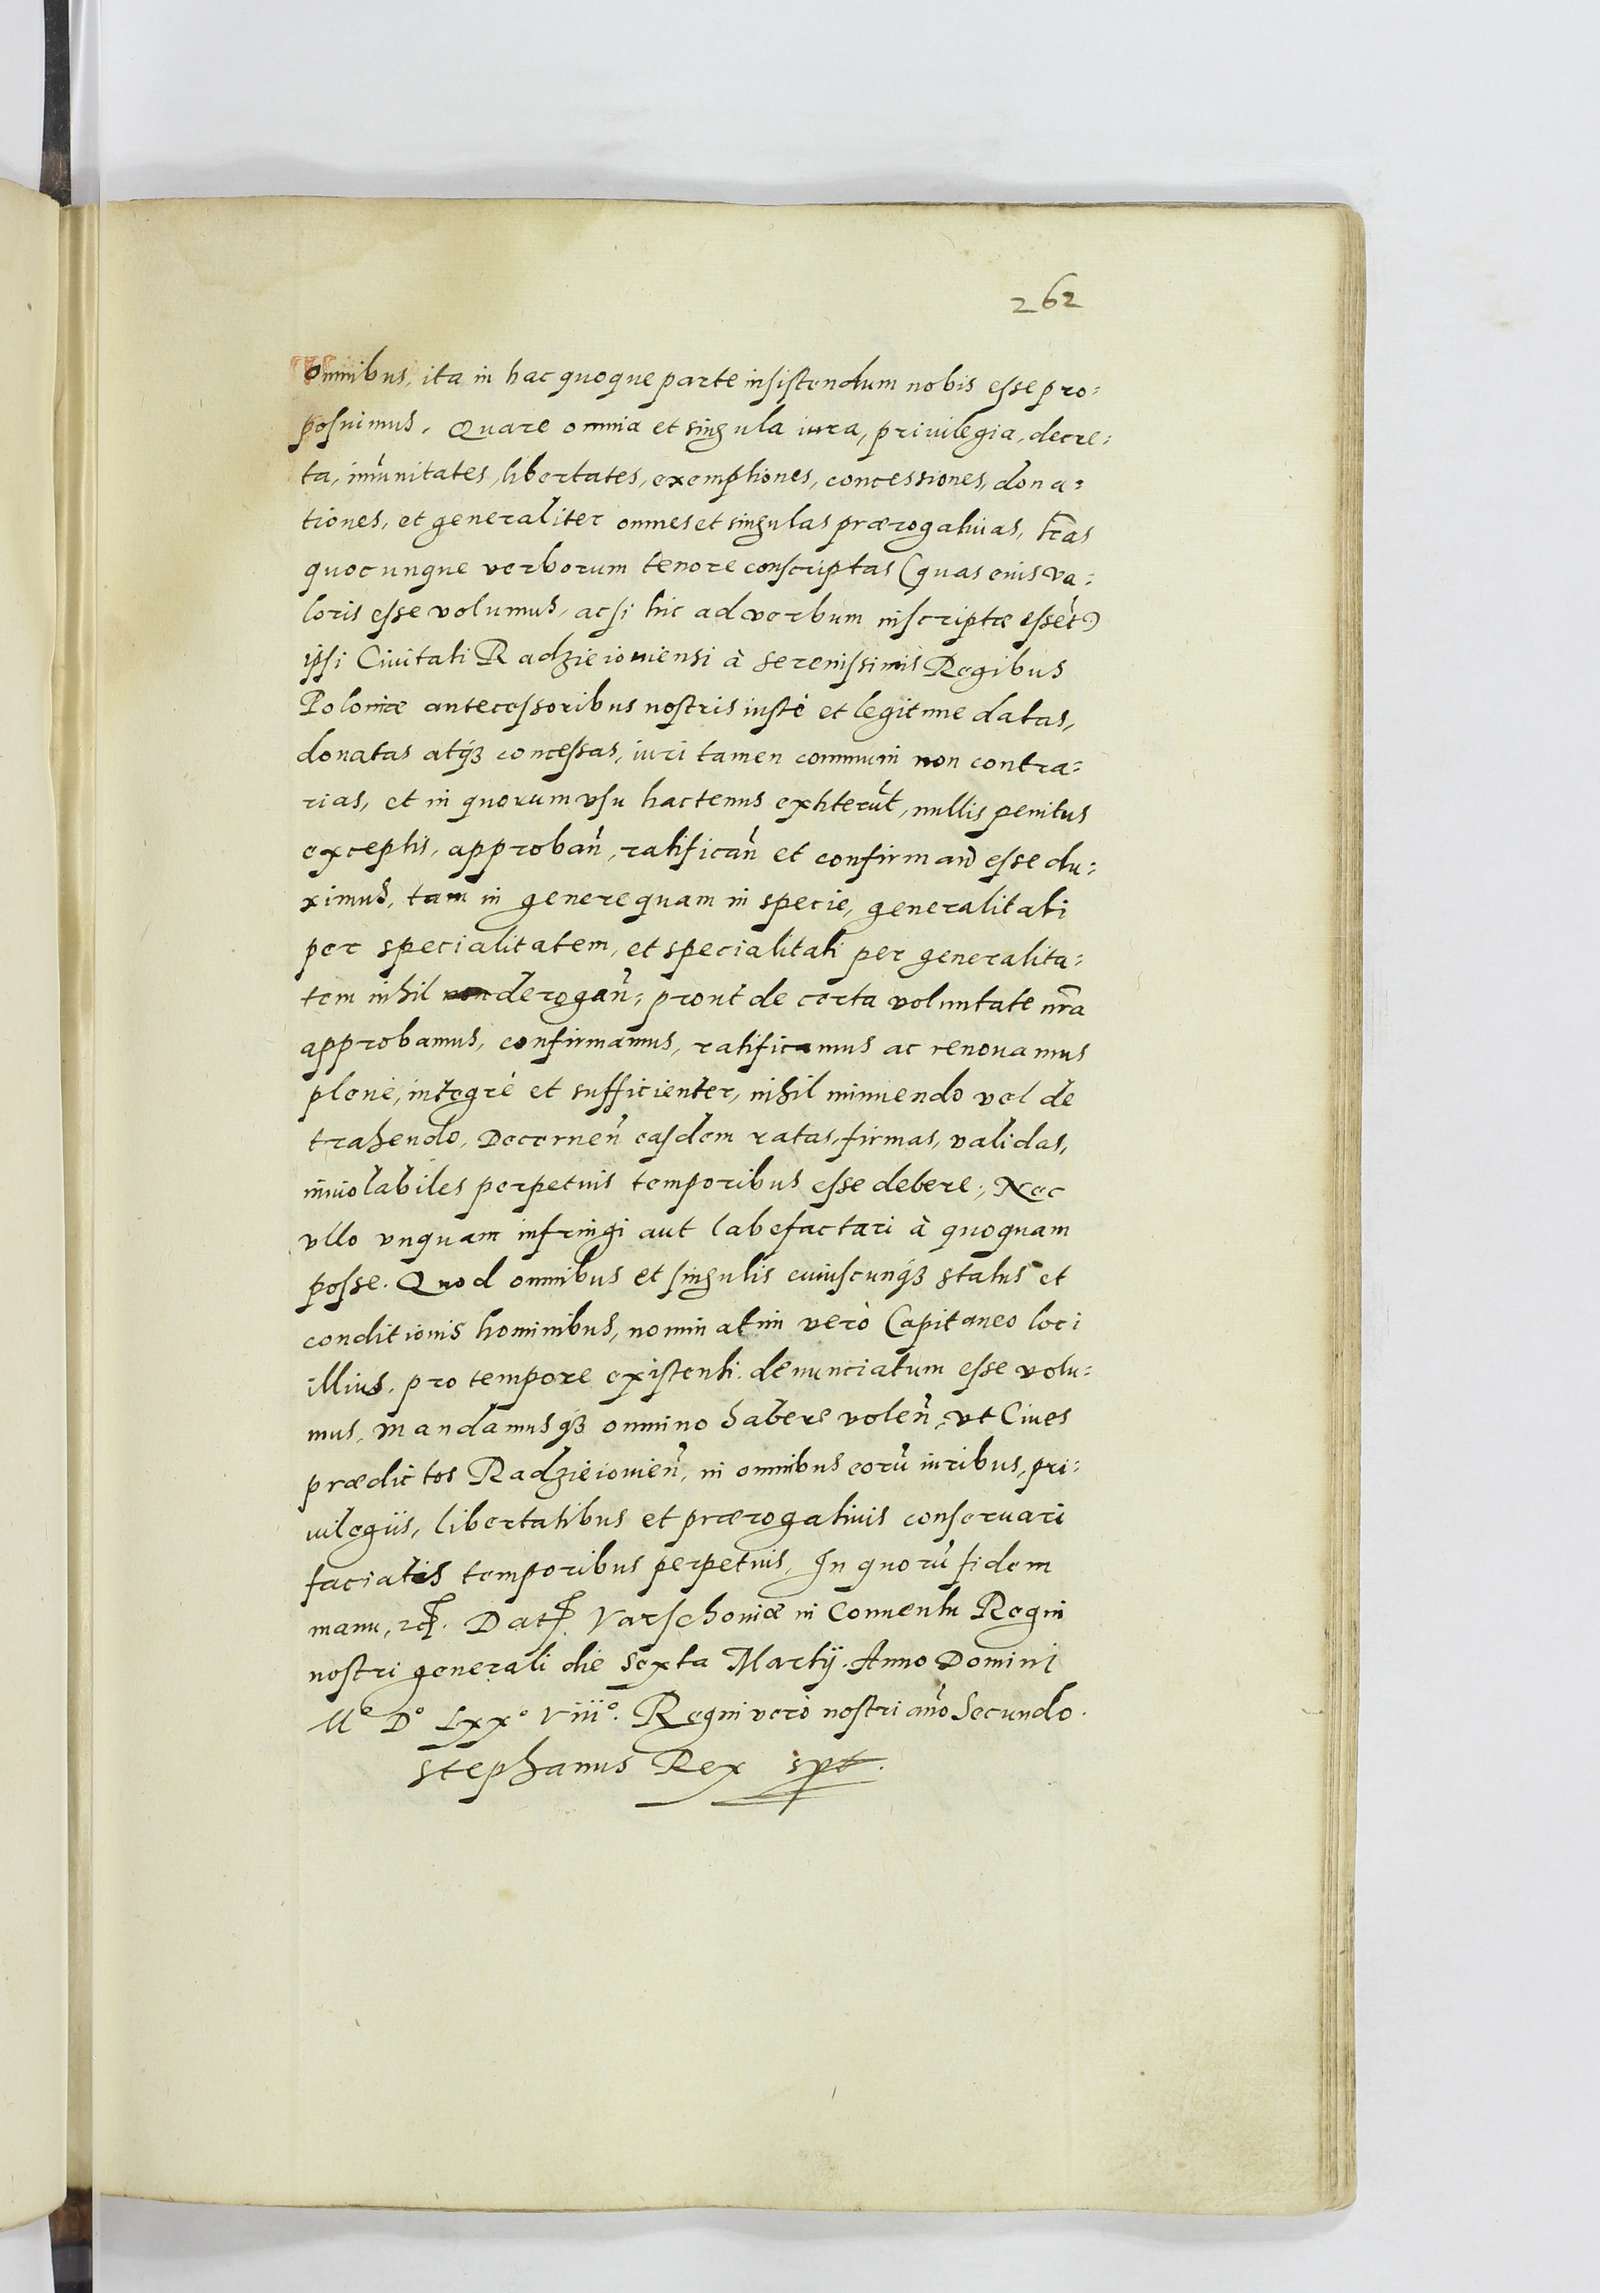 262
omnibus, ita in hac quoque parte insistendum nobis esse pro=
posuimus. Quare omnia et singula iura, priuilegia, decre=
ta, im̃unitates, libertates, exemptiones, concessiones, dona=
tiones, et generaliter omnes et singulas prærogatiuas, l̃ras
quocunque verborum tenore conscriptas (quas eius va=
loris esse volumus, acsi hic ad verbum inscriptæ essēt)
ipsi Ciuitati Radzieiouiensi à serenissimis Regibus
Poloniæ antecessoribus nostris iustè et legitime datas,
donatas atq̃ȝ concessas, iuri tamen communi non contra=
rias, et in quorum vsu hactenus extiterūt, nullis penitus
exceptis, approban̄, ratifican̄ et confirmān esse du=
ximus, tam in genere quam in specie, generalitati
per specialitatem, et specialitati per generalita=
tem nihil derogan̄, prout de certa voluntate nr̃a
approbamus, confirmamus, ratificamus ac renouamus
plenè, integrè et sufficienter, nihil minuendo vel de
trahendo, Decernen̄ easdem ratas, firmas, validas,
inuiolabiles perpetuis temporibus esse debere, Nec
vllo vnquam infringi aut labefactari à quoquam
posse. Quod omnibus et singulis cuiuscunq̃ȝ status et
conditionis hominibus, nominatim verò Capitaneo loci
illius, pro tempore existenti, denunciatum esse volu=
mus, mandamusq̃ȝ omnino habere volen̄, vt Ciues
prædictos Radzieiouien̄, in omnibus eorū iuribus, pri=
uilegiis, libertatibus et prærogatiuis conseruari
faciatis temporibus perpetuis, In quorū fidem
manu, ꝛꝯ. Datꝭ. Varschouiæ in Conuentu Regni
nostri generali die Sexta Martij. Anno Domini
Mº Dº Lxxº viiiº. Regni verò nostri an̄o Secundo.
Stephanus Rex spt.